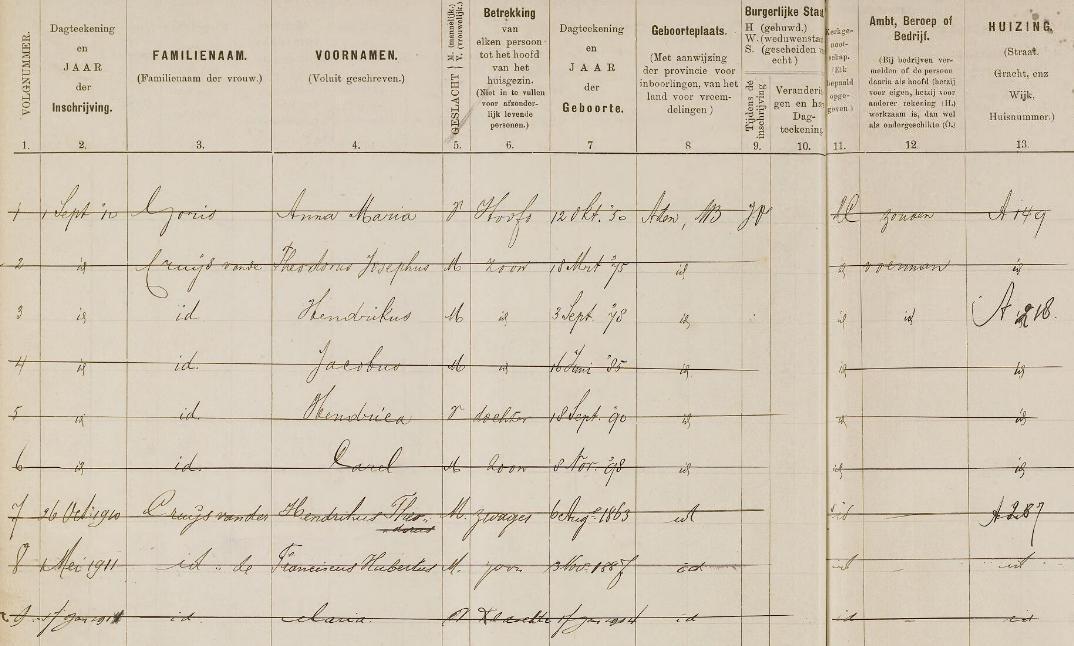 VOLGNUMMER.
1.
Dagteekening
en
JAAR
der
Inschrijving.
2.
FAMILIENAAM.
(Familienaam der vrouw.)
3.
VOORNAMEN.
(Voluit geschreven.)
4.
GESLACHT M. (mannelijk.) V. (vrouwelijk.)
5.
Betrekking
van
elken persoon
tot het hoofd
van het
huisgezin.
(Niet in te vullen
voor afzonder-
lijk levende
personen.)
6.
Dagteekening
en
JAAR
der
Geboorte.
7
Geboorteplaats.
(Met aanwijzing
der provincie voor
inboorlingen, van het
land voor vreem-
delingen)
8
Burgerlijke Staa
H (gehuwd.)
W. (weduwenstaa
S. (gescheiden
echt)
Tijdens de
inschrijving
9.
Veranderi
gen en ha
Dag-
teekening
10.
Kerkge-
noot-
schap.
bepaald
opge-
geven.)
11.
Ambt, Beroep of
Bedrijf.
(Bij bedrijven ver-
melden of de persoon
daarin als hoofd (hetzij
voor eigen, hetzij voor
anderer rekening (H.)
werkzaam is, dan wel
als ondergeschikte (O.)
12
HUIZING.
(Straat.
Gracht, enz
Wijk,
Huisnummer.)
13.
1 1 Sept '10 Anna Maria V Hoofd 12 Okt. '50 NB zonder A 149
2 id Cruijs vande Theodorus Josephus M zoon 18 Mrt '75 id id voerman id
3 id id. Hendrikus M id 3 Sept. '78 id id id A 218.
4 id id. Jacobus M id 16 Juni '85 id id id
5 id id. Hendrica V dochter 18 Sept. '90 id id id
6 id id. Carel M zoon 8 Nov. '98 id id id
7 26 Oct 1910 Cruijs vander Hendrikus Theo-
dorus M. zwager 6 Aug. 1863 id id — A 287
8 1 Mei 1911 id .. de Franciscus Hubertus M. zoon 3 Nov. 1887 id id — id
9. 17 Jan id Maria. V 17 Jan id id — id